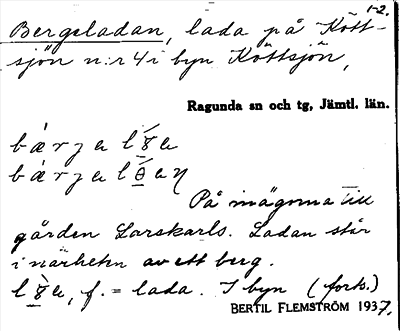 1-2.
Bergeladan, lada på Kött-
sjön n:r 4 i byn Köttsjön,
Ragunda sn och tg, Jämtl. län.
På ägorna till
gården Larskarls. Ladan står
i närheten av ett berg.
f. = lada. I byn (forts.)
BERTIL FLEMSTRÖM 1937.